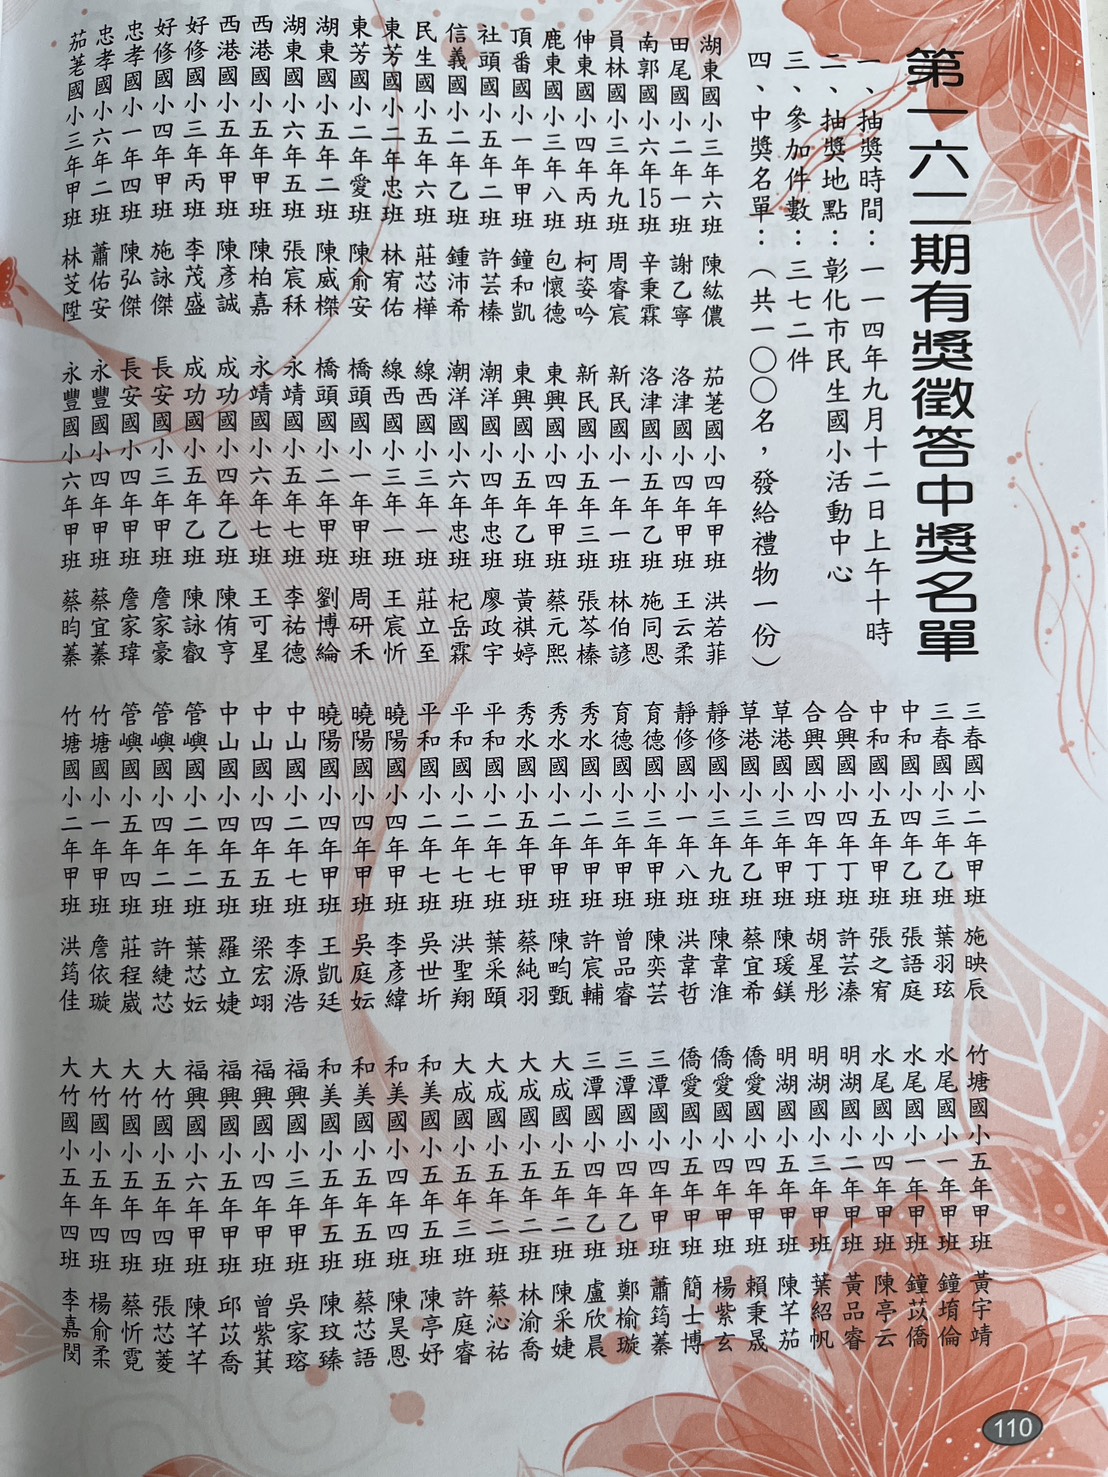 第一六二期有獎徵答中獎名單
一、抽獎時間：一一四年九月十二日上午十時
二、抽獎地點：彰化市民生國小活動中心
三、參加件數：三七二件
四、中獎名單：（共一〇〇名，發給禮物一份）
湖東國小三年六班 陳紘儂
田尾國小二年一班 謝乙寧
南郭國小六年15班 辛秉霖
員林國小三年九班 周睿宸
伸東國小四年丙班 柯姿吟
鹿東國小三年八班 包懷德
頂番國小一年甲班 鐘和凱
社頭國小五年二班 許芸榛
信義國小二年乙班 鍾沛希
民生國小五年六班 莊芯樺
東芳國小二年忠班 林宥佑
東芳國小二年愛班 陳俞安
湖東國小五年二班 陳威傑
湖東國小六年五班 張宸秝
西港國小五年甲班 陳柏嘉
西港國小五年甲班 陳彥誠
好修國小三年丙班 李茂盛
好修國小四年甲班 施詠傑
忠孝國小一年四班 陳弘傑
忠孝國小六年二班 蕭佑安
茄荖國小三年甲班 林芠陞
茄荖國小四年甲班 洪若菲
洛津國小四年甲班 王云柔
洛津國小五年乙班 施同恩
新民國小一年一班 林伯諺
新民國小五年三班 張芩榛
東興國小四年甲班 蔡元熙
東興國小五年乙班 黃祺婷
潮洋國小四年忠班 廖政宇
潮洋國小六年忠班 杞岳霖
線西國小三年一班 莊立至
線西國小三年一班 王宸忻
橋頭國小一年甲班 周研禾
橋頭國小二年甲班 劉博綸
永靖國小五年七班 李祐德
永靖國小六年七班 王可星
成功國小四年乙班 陳侑亨
成功國小五年乙班 陳詠叡
長安國小三年甲班 詹家豪
長安國小四年甲班 詹家瑋
永豐國小四年甲班 蔡宜蓁
永豐國小六年甲班 蔡昀蓁
三春國小二年甲班 施映辰
三春國小三年乙班 葉羽玹
中和國小四年乙班 張語庭
中和國小五年甲班 張之宥
合興國小四年丁班 許芸溱
合興國小四年丁班 胡星彤
草港國小三年甲班 陳瑗鎂
草港國小三年乙班 蔡宜希
靜修國小三年九班 陳韋淮
靜修國小一年八班 洪韋哲
育德國小三年甲班 陳奕芸
育德國小三年甲班 曾品睿
秀水國小二年甲班 許宸輔
秀水國小二年甲班 陳畇甄
秀水國小五年甲班 蔡純羽
平和國小二年七班 葉采頤
平和國小二年七班 洪聖翔
平和國小二年七班 吳世圻
曉陽國小四年甲班 李彥緯
曉陽國小四年甲班 吳庭妘
曉陽國小四年甲班 王凱廷
中山國小二年七班 李源浩
中山國小四年五班 梁宏翊
中山國小四年五班 羅立婕
管嶼國小二年二班 葉芯妘
管嶼國小四年二班 許緁芯
管嶼國小五年四班 莊程崴
竹塘國小一年甲班 詹依璇
竹塘國小二年甲班 洪筠佳
竹塘國小五年甲班 黃宇靖
水尾國小一年甲班 鐘堉倫
水尾國小一年甲班 鐘苡僑
水尾國小四年甲班 陳亭云
明湖國小二年甲班 黃品睿
明湖國小三年甲班 葉紹帆
明湖國小五年甲班 陳芊茄
僑愛國小四年甲班 賴秉晟
僑愛國小四年甲班 楊紫玄
僑愛國小五年甲班 簡士博
三潭國小四年甲班 蕭筠蓁
三潭國小四年乙班 鄭榆璇
三潭國小四年乙班 盧欣晨
大成國小五年二班 陳采婕
大成國小五年二班 林渝喬
大成國小五年二班 蔡沁祐
大成國小五年三班 許庭睿
和美國小五年五班 陳亭妤
和美國小四年四班 陳昊恩
和美國小五年五班 蔡芯語
和美國小五年五班 陳玟臻
福興國小三年甲班 吳家瑢
福興國小四年甲班 曾紫萁
福興國小五年甲班 邱苡喬
福興國小六年甲班 陳芊芊
大竹國小五年四班 張芯菱
大竹國小五年四班 蔡忻霓
大竹國小五年四班 楊俞柔
大竹國小五年四班 李嘉閔
110